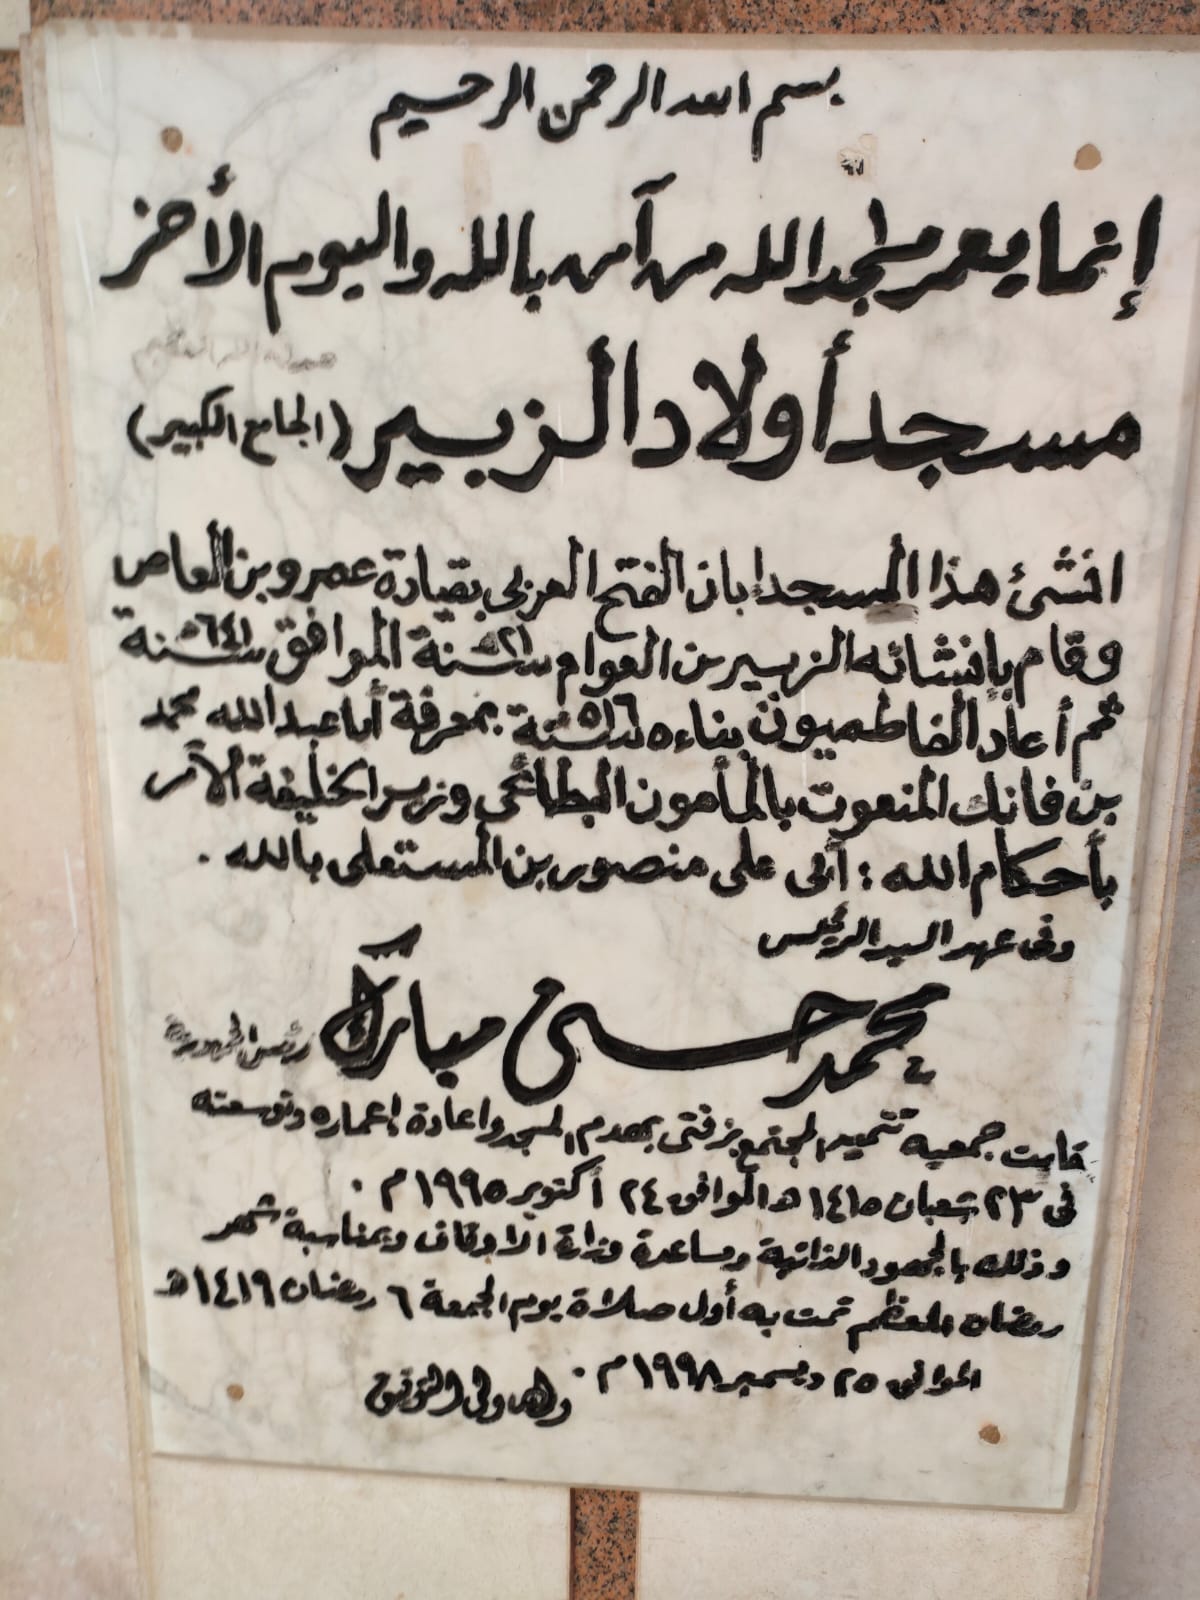 بسم الله الرحمن الرحيم
إنما يعمر مساجد الله من آمن بالله واليوم الأخر
مسجد أولاد الزبير (الجامع الكبير)
انشئ هذا المسجد ابان الفتح العربى بقيادة عمرو بن العاص
وقام بإنشائه الزبير بن العوام سنة ٢١هـ الموافق سنة ٦٤١م
ثم أعاد الفاطميون بناءه سنة ٥١٦هـ بمعرفة أبا عبد الله محمد
بن فاتك المنعوت بالمأمون البطائحى وزير الخليفة الآمر
بأحكام الله : أبى على منصور بن المستعلى بالله .
وفى عهد السيد الرئيس
محمد حسنى مبارك رئيس الجمهورية
قامت جمعية تنمية المجتمع بزفتى بهدم المسجد واعادة إعماره وتوسعته
فى ٢٣ شعبان ١٤١٥ هـ الموافق ٢٤ أكتوبر ١٩٩٥ م .
وذلك بالجهود الذاتية ومساعدة وزارة الاوقاف وبمناسبة شهر
رمضان المعظم تمت به أول صلاة يوم الجمعة ٦ رمضان ١٤١٩هـ
الموافق ٢٥ ديسمبر ١٩٩٨ م . والله ولى التوفيق